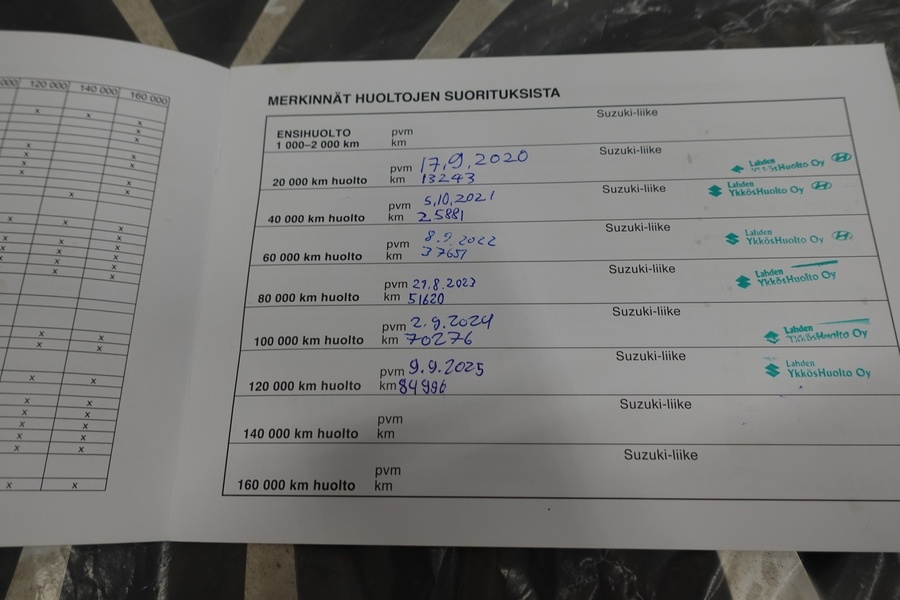 000 120 000 140 000 160 000
MERKINNÄT HUOLTOJEN SUORITUKSISTA
ENSIHUOLTO pvm Suzuki-liike
1 000–2 000 km km
pvm 17.9.2020 Suzuki-liike Lahden
20 000 km huolto km 13243 YkkösHuolto Oy
pvm 5.10.2021 Suzuki-liike Lahden
40 000 km huolto km 25881 YkkösHuolto Oy
pvm 8.9.2022 Suzuki-liike Lahden
60 000 km huolto km 37651 YkkösHuolto Oy
pvm 21.8.2023 Suzuki-liike Lahden
80 000 km huolto km 51620 YkkösHuolto Oy
pvm 2.9.2024 Suzuki-liike Lahden
100 000 km huolto km 70276 YkkösHuolto Oy
pvm 9.9.2025 Suzuki-liike Lahden
120 000 km huolto km 84996 YkkösHuolto Oy
pvm Suzuki-liike
140 000 km huolto km
pvm Suzuki-liike
160 000 km huolto km